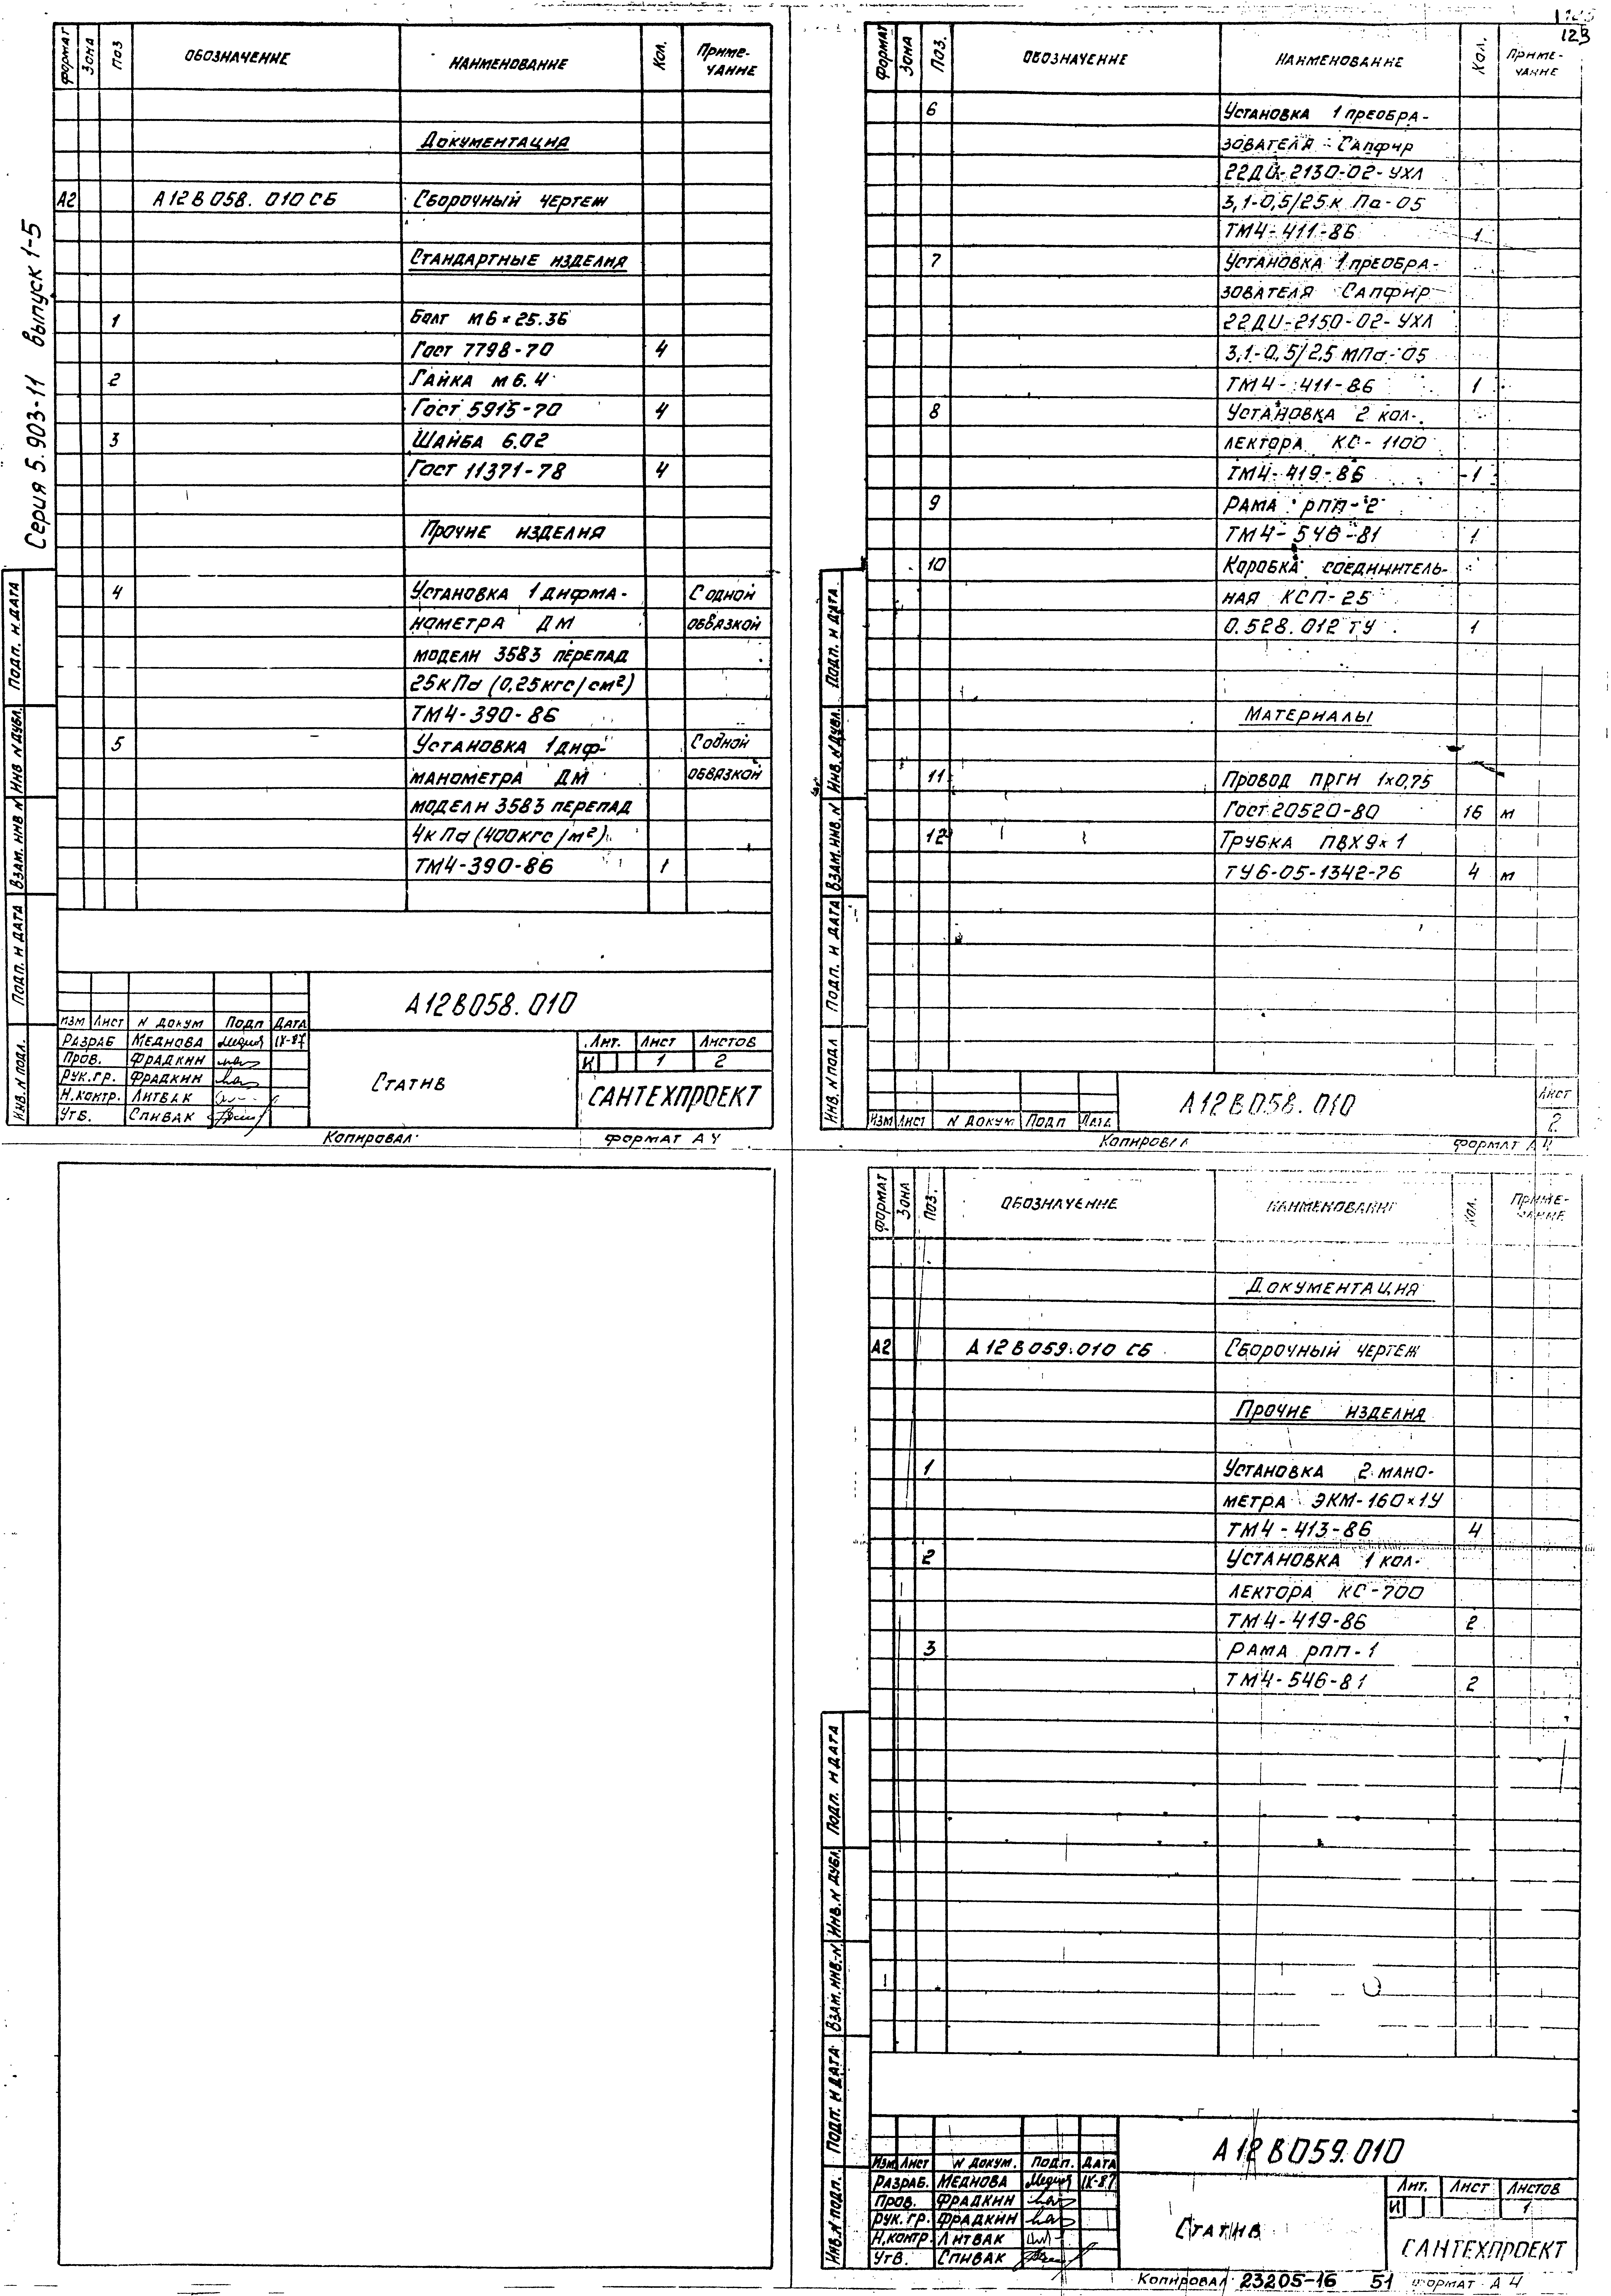 Серия 5.903-11 выпуск 1-5
Формат Зона Поз Обозначение Наименование Кол. Примечание
Документация
А2 А12В058.010 СБ Сборочный чертеж
Стандартные изделия
1 Болт М6×25.36
Гост 7798-70 4
2 Гайка М6.4
Гост 5915-70 4
3 Шайба 6.02
Гост 11371-78 4
Прочие изделия
4 Установка 1 дифма- С одной
нометра ДМ обвязкой
модели 3583 перепад
25кПа (0,25кгс/см²)
ТМ4-390-86
5 Установка 1 диф- С одной
манометра ДМ обвязкой
модели 3583 перепад
4кПа (400кгс/м²)
ТМ4-390-86 1
Подп. и дата
Инв. N дубл.
Взам. инв. N
Подп. и дата
Инв. N подл.
А12В058.010
Изм Лист N докум Подп Дата
Разраб Меднова IX-87
Пров. Фрадкин
Рук.гр. Фрадкин
Н.контр. Литвак
Утв. Спивак
Статив
Лит. Лист Листов
И 1 2
САНТЕХПРОЕКТ
Копировал Формат А4
123
Формат Зона Поз. Обозначение Наименование Кол. Примечание
6 Установка 1 преобра-
зователя Сапфир
22ДИ-2130-02-УХЛ
3,1-0,5/25к Па-05
ТМ4-411-86 1
7 Установка 1 преобра-
зователя Сапфир
22ДИ-2150-02-УХЛ
3,1-0,5/2,5 МПа-05
ТМ4-411-86 1
8 Установка 2 кол-
лектора КС-1100
ТМ4-419-86 1
9 Рама РПП-2
ТМ4-546-81 1
10 Коробка соединитель-
ная КСП-25
0.528.012 ТУ 1
Материалы
11 Провод ПРГН 1×0,75
Гост 20520-80 16 м
12 Трубка ПВХ 9×1
ТУ6-05-1342-76 4 м
Подп. и дата
Инв. N дубл.
Взам. инв. N
Подп. и дата
Инв. N подл
Изм Лист N докум Подп Дата
А12В058.010
Лист
2
Копировал Формат А4
Формат Зона Поз. Обозначение Наименование Кол. Примечание
Документация
А2 А12В059.010 СБ Сборочный чертеж
Прочие изделия
1 Установка 2 мано-
метра ЭКМ-160×1У
ТМ4-413-86 4
2 Установка 1 кол-
лектора КС-700
ТМ4-419-86 2
3 Рама РПП-1
ТМ4-546-81 2
Подп. и дата
Инв. N дубл.
Взам. инв. N
Подп. и дата
Инв. N подл.
А12В059.010
Изм Лист N докум. Подп. Дата
Разраб. Меднова IX-87
Пров. Фрадкин
Рук.гр. Фрадкин
Н.контр. Литвак
Утв. Спивак
Статив
Лит. Лист Листов
И 1
САНТЕХПРОЕКТ
Копировал 23205-16 51 Формат А4